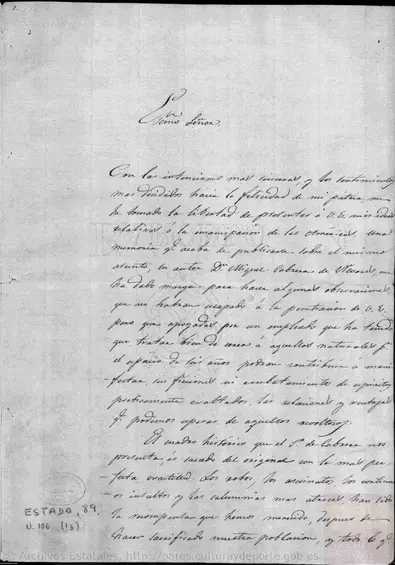 1.
Exmo Señor.
Con las intenciones mas sinceras, y los sentimientos
mas decididos hacia la felicidad de mi patria, me
he tomado la libertad de presentar á V.E. mis ideas
relativas á la emancipacion de las Américas. Una
memoria q.e acaba de publicarse sobre el mismo
asunto, su autor Dn. Miguel Cabrera de Nevares, me
ha dado margen para hacer algunas observaciones,
que no habran escapado á la penetracion de V.E.
pero que apoyadas por un empleado que ha tenido
que tratar bien de cerca á aquellos naturales p.r
el espacio de años podran contribuir a mani-
festar sin ficciones ni
exaltados, las relaciones y ventajas
q.e podemos esperar de aquellos
El cuadro histórico que el S.r de Cabrera nos
presenta, es sacado del original con la mas per-
fecta exactitud. Los robos, los asesinatos, los continu-
os insultos y las calumnias mas atroces, han sido
la recompensa que hemos merecido, despues de
haber sacrificado nuestra poblacion, y todo lo q.e
ESTADO, 89,
N. 106 (13)
© Archivos Estatales, https://pares.culturaydeporte.gob.es